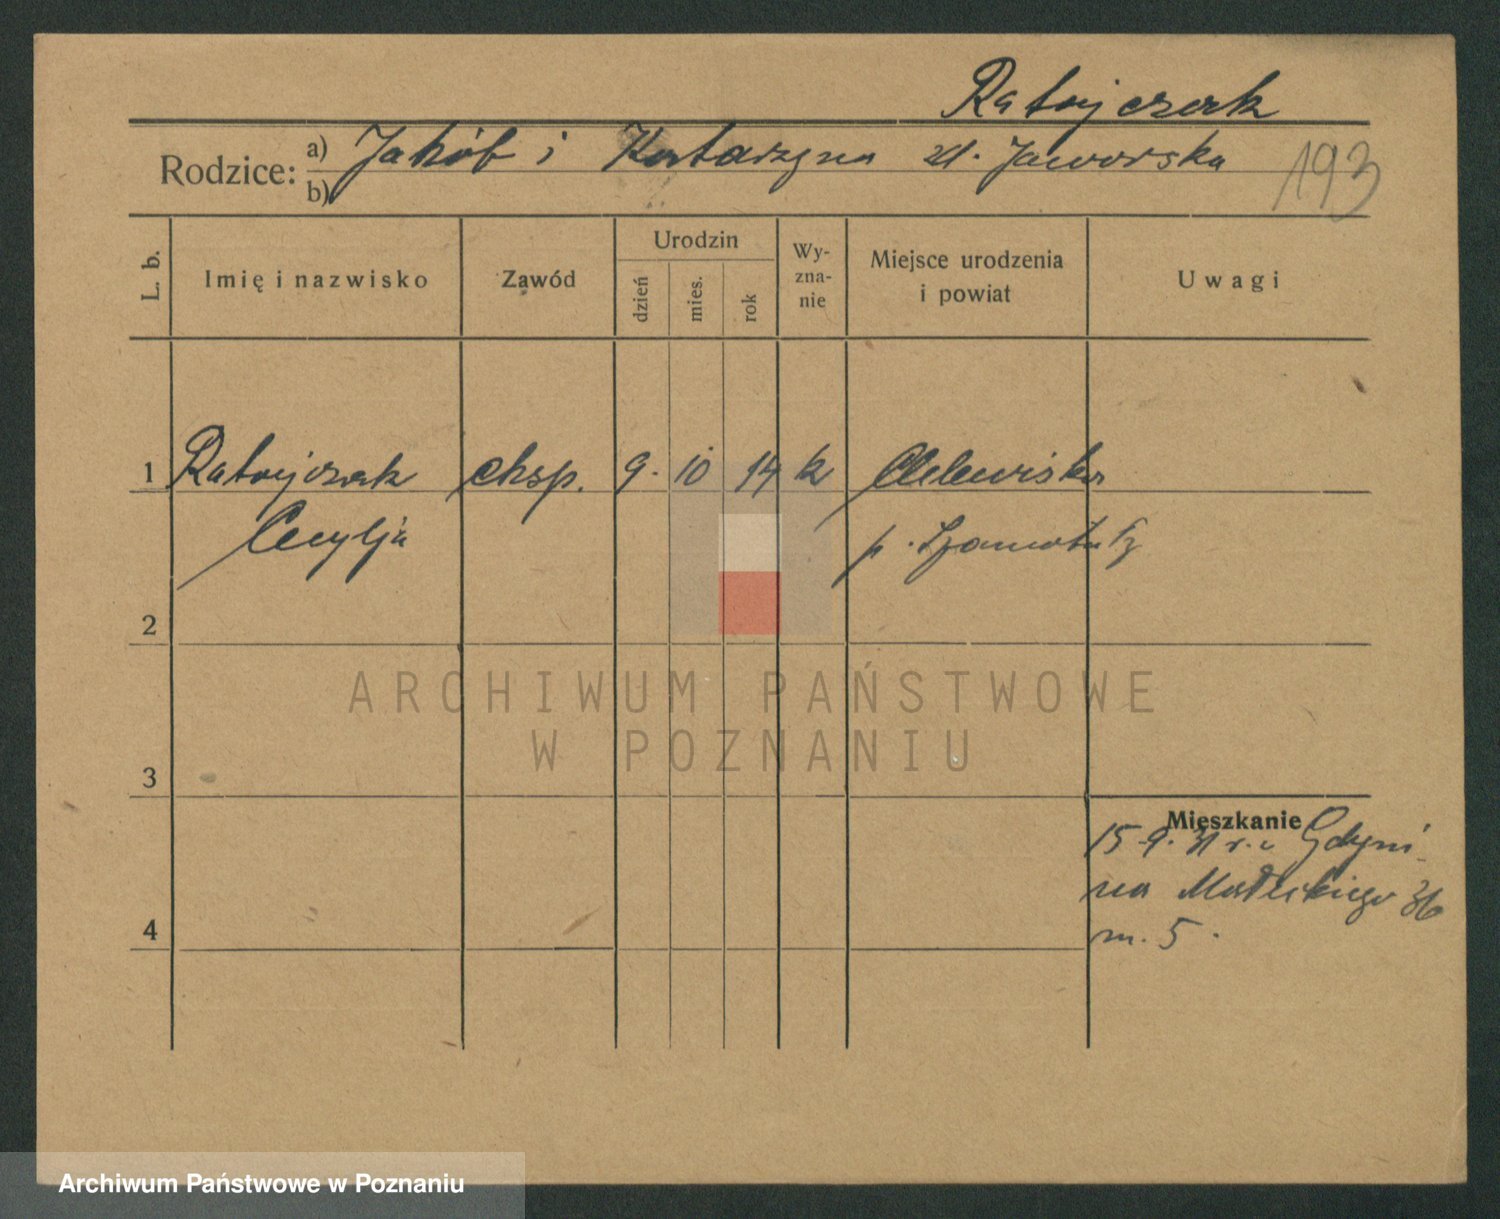 Ratajczak
Rodzice: a) Jakób i Katarzyna zd. Jaworska
b)
193
L. b.
Imię i nazwisko
Zawód
Urodzin
dzień
mies.
rok
Wy-
zna-
nie
Miejsce urodzenia
i powiat
Uwagi
1 Ratajczak eksp. 9. 10 14 k
Cecylja p. Szamotuły
2
3
4
Mieszkanie
15.9.31 r. Gdyni
m. 5.
ARCHIWUM PAŃSTWOWE
W POZNANIU
Archiwum Państwowe w Poznaniu